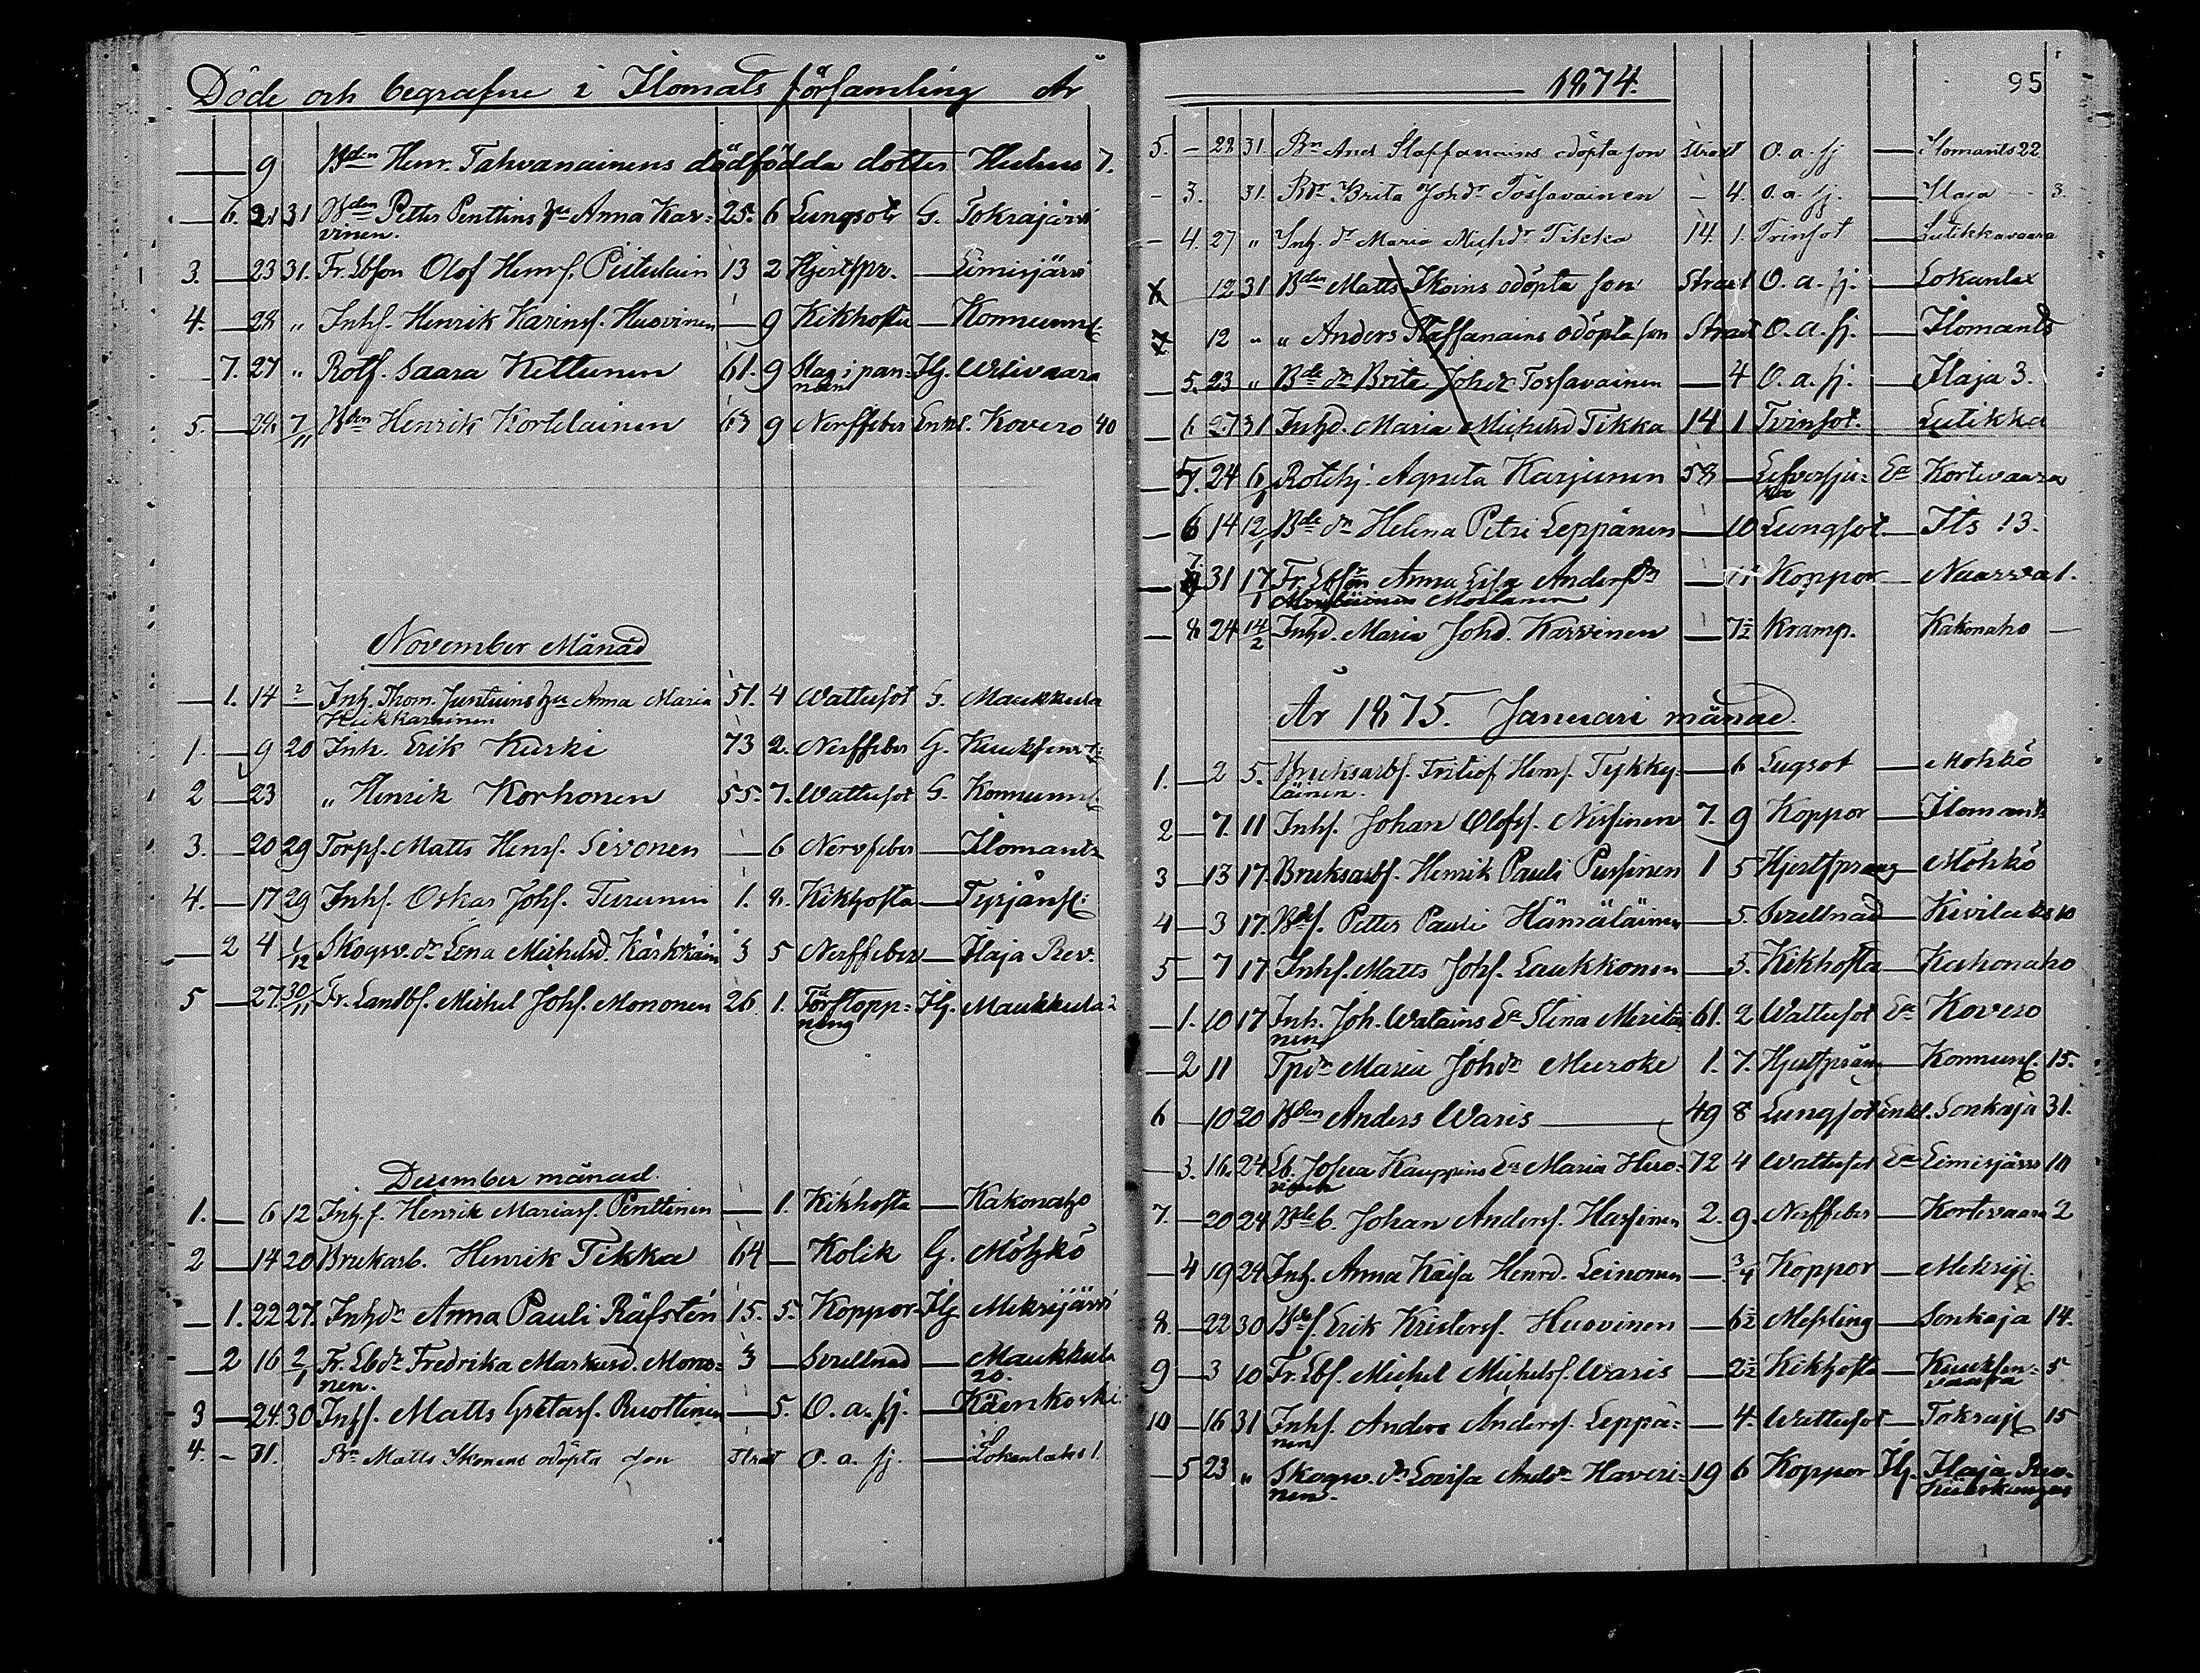 Döde och begrafne i Ilomats församling År
— 9 Bden Henr. Tahvanainens dödfödda dotter Huhus 7.
— 6. 21 31 Bden Petter Penttins hu Anna Kar= 25. 6 Lungsot G. Tokrajärvi
vinen.
3. — 23 31. Fr. Lbson Olof Henrs. Piitulain 13 2 Hjertspr. — Liimisjärvi
4. — 28 " Inhs. Henrik Karins. Huovinen — 9 Kikhosta — Konnunni.
— 7. 27 " Rothj. Saara Kettunen 61. 9 Slag i pan= Hg. Wilivaara
nan
5. — 28 7/11 Bden Henrik Kortelainen 63 9 Nerffeber Enkl. Kovero 40
November Månad
— 1. 14 — Inh. Thom. Juntuins hu Anna Maria 51. 4 Wattusot G. Maukkula
Hukkarainen
1. — 9 20 Inh. Erik Kurki 73 2. Nerffeber G. Kuuksenv:
2 — 23 " Henrik Korhonen 55. 7. Wattusot G. Konnunni.
3. — 20 29 Torps. Matts Henrs. Sivonen — 6 Nervfeber — Ilomants
4. — 17 29 Inhs. Oskar Johs. Turunen 1. 8. Kikhosta — Tyrjäns:
— 2 4 1/12 Skogsv. dr Lena Michelsd. Kärkkäin 3 5 Nerffeber — Ilaja Rev.
5 — 27 30/11 Fr. Landbs. Michel Johs. Mononen 26 1. Förstopp= Hg. Maukkula 2
ning
December månad.
1. — 6 12 Inh. s. Henrik Marias. Penttinen — 1. Kikhosta — Kakonaho
2 — 14 20 Bruksarb. Henrik Tikka 64 — Kolik G. Möhkö
— 1. 22 27. Inhdr Anna Pauli Räfstén 15. 5. Koppor Hg Mekrijärvi
— 2 16 2/1 Fr. Lbdr Fredrika Markusd. Mono= 3 — Svullnad — Maukkula
nen. 20.
3 — 24. 30 Inhs. Matts Gretas. Ruottinen — 5. O. a. sj. — Käenkoski
4. — 31. Bn Matts Ikonens odöpta son Strax O. a. sj. — Lokanlaks 1.
1874.
95
5. — 28 31. Bn And Staffanains odöpta son Strax O. a. sj — Ilomants 22
— 3. 31. Bdr Brita Johdr Tossavainen — 4. O. a. sj. — Ilaja — 3.
— 4. 27 " Inh. dr Maria Michdr Tikka 14. 1. Tvinsot — Lutikkavaara
x 12 31 Bden Matts Ikoins odöpta son Strax O. a. sj. — Lokanlax
x 12 " " Anders Staffanains odöpta son Strax O. a. sj. — Ilomants
— 5. 23 " Bde dr Brita Johdr Tossavainen — 4 O. a. sj. — Ilaja 3.
— 6 27 31 Inhd. Maria Michelsd Tikka 14 1 Tvinsot. Lutikka
— 5. 24 6/1 Rothj. Agneta Karjunen 58 — Lefversju= Ea Kortevaara
ka
— 6 14 12/1 Bde dr Helena Petri Leppänen — 10 Lungsot — Its 13.
7. — 31 17/1 Fr. Lbdr Anna Lisa Andersdr — Koppor — Naarva 1.
Moilanen
— 8 24 14/2 Inhd. Maria Johd. Karvinen — 7½ Kramp. Kakonaho —
År 1875. Januari månad.
1. — 2 5. Bruksarbs. Fritiof Henrs. Tykky= — 6 Lugsot — Möhkö
läinen.
2 — 7. 11 Inhs. Johan Olofss. Nissinen 7. 9 Koppor — Ilomants
3 — 13 17. Bruksarbs. Henrik Pauli Pussinen 1 5 Hjertsprång — Möhkö
4 — 3 17. Bds. Petter Pauli Hämäläinen — 5. Svullnad — Kivilaks 10
5 — 7 17 Inhs. Matts Johs. Laukkonen — 3. Kikhosta — Kakonaho
— 1. 10 17 Inh. Joh. Watains Ea Stina Meriläi 61. 2 Wattusot Ea Kovero
nen
— 2 11 Tpdr Maria Johdr Muroke 1. 7. Hjertsprång — Konnuns. 15.
6 — 10 20 Bden Anders Waris — 49 8 Lungsot Enkl. Sonkaja 31.
— 3. 16. 24 Lb. Josua Kauppins Ea Maria Huo= 72 4 Wattusot Ea Liimisjärvi 10
vinen
7. — 20 24 Bde b. Johan Anders. Hassinen 2. 9. Nerffeber — Kortevaara 2
— 4 19 24 Inh. Anna Kaisa Henrd. Leinonen — 3/4 Koppor — Mekrij.
8. — 22 30 Bdes. Erik Kristers. Huovinen — 6½ Messling — Sonkaja 14.
9 — 3 10 Fr. Lbs. Michel Michels. Waris — 2½ Kikhosta — Kuuksen= 5
vaara
10 — 16 31 Inhs. Anders Anders. Leppä= — 4. Wattusot — Tokraj. 15
nen
— 5 23 " Skogsv. dr Lovisa Andsdr Haveri= 19 6 Koppor Hg. Ilaja Rev.
nen.